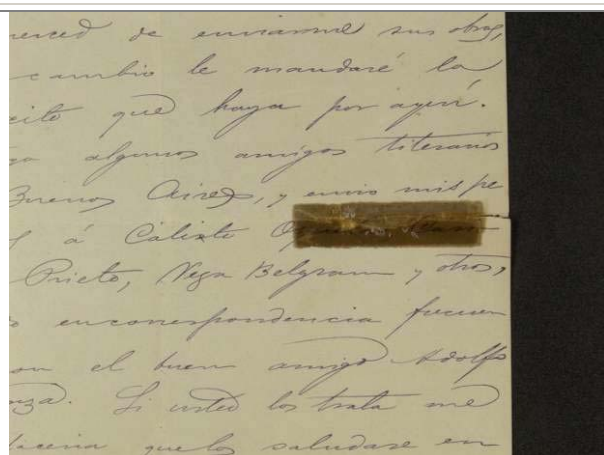 merced de enviarme sus obras,
cambio le mandaré la
que haya por aquí.
algunos amigos literarios
Buenos Aires, y envio mis pe
á Calixto
Prieto, Vega Belgrano y otros,
en correspondencia frecuen
el buen amigo Adolfo
Si usted los trata me
que los saludase en